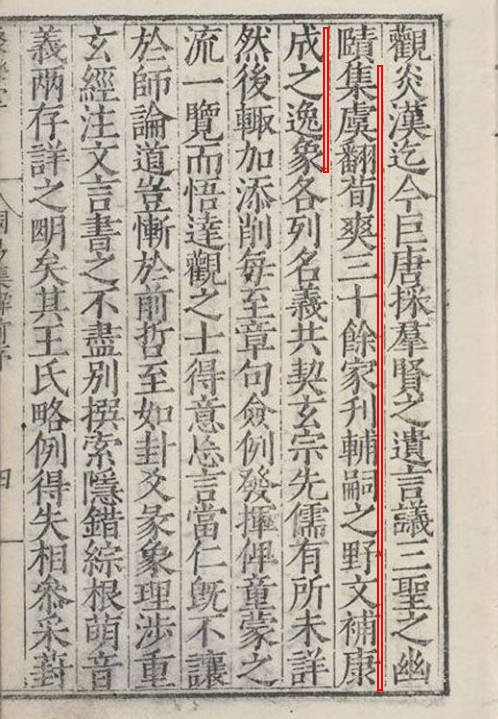 觀炎漢迄今巨唐採羣賢之遺言議三聖之幽
賾集虞翻荀爽三十餘家刋輔嗣之野文補康
成之逸象各列名義共契玄宗先儒有所未詳
然後輙加添削每至章句僉例發揮俾童蒙之
流一覽而悟達觀之士得意忘言當仁旣不讓
於師論道豈慚於前哲至如卦爻彖象理涉重
玄經注文言書之不盡別撰索隱錯綜根萌音
義兩存詳之明矣其王氏略例得失相參采葑
周易集解 序 四